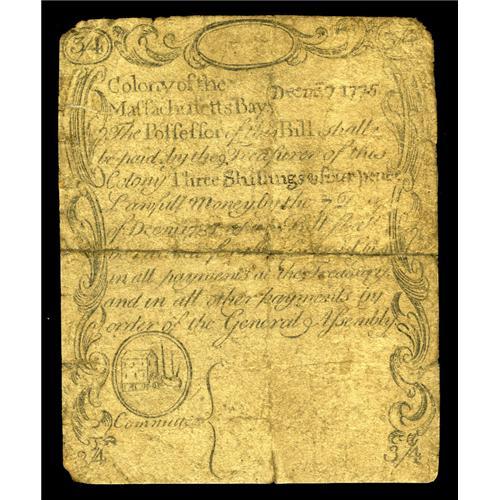 34
Colony of the
Decem 7 1775
Massachusetts Bay
The Possessor of this Bill shall
be paid by the Treasurer of this
Colony Three Shillings & four pence
Lawfull Money by the 7 D
of Decem 178 Bill
in all payments at the Treasury
and in all other payments by
order of the General Assembly
Committee
3/4
3/4